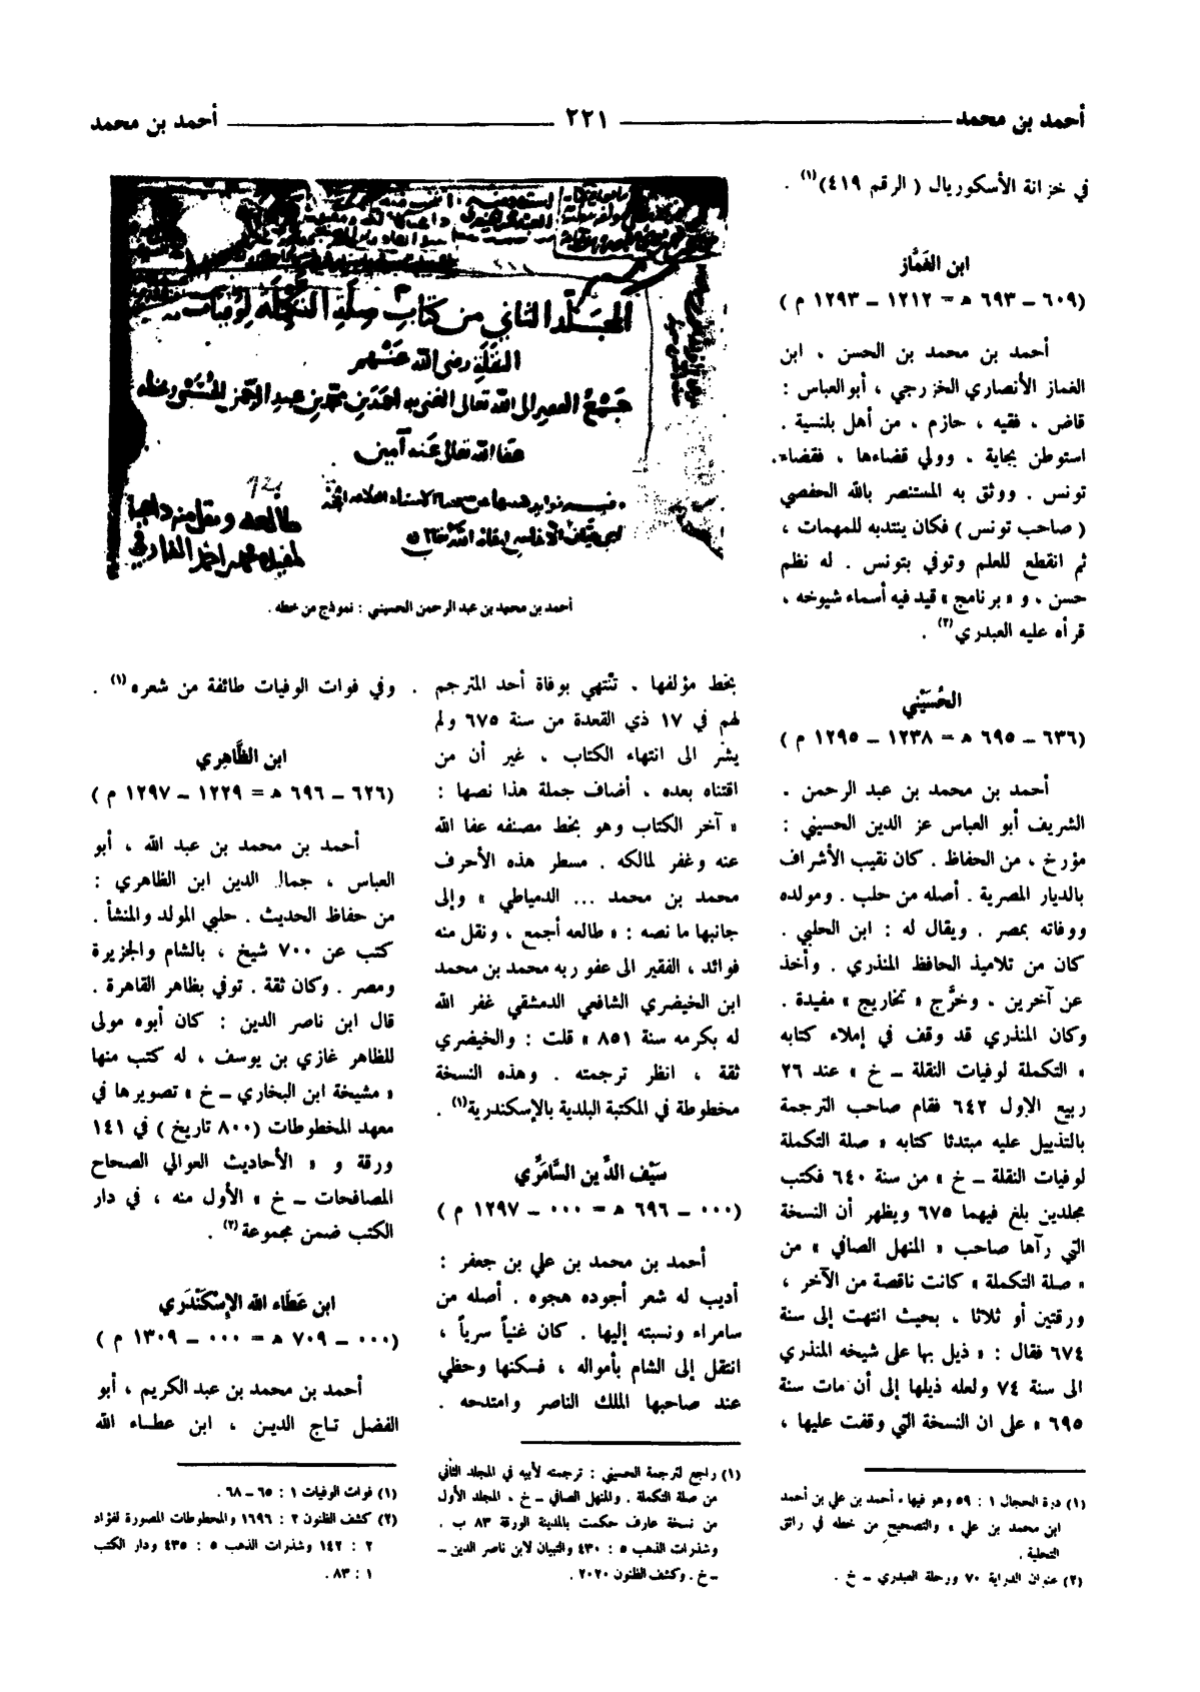 أحمد بن محمد ــــــ ٢٢١ ــــــ أحمد بن محمد
في خزانة الأسكوريال ( الرقم ٤١٩)(١) .
ابن الغَمَّاز
(٦٠٩ – ٦٩٣ هـ = ١٢١٢ – ١٢٩٣ م )
أحمد بن محمد بن الحسن ، ابن
الغماز الأنصاري الخزرجي ، أبو العباس :
قاض ، فقيه ، حازم ، من أهل بلنسية .
استوطن بجاية ، وولي قضاءها ، فقضاء
تونس . ووثق به المستنصر بالله الحفصي
( صاحب تونس ) فكان ينتدبه للمهمات ،
ثم انقطع للعلم وتوفي بتونس . له نظم
حسن ، و « برنامج » قيد فيه أسماء شيوخه ،
قرأه عليه العبدري(٢) .
الحُسَيْني
(٦٣٦ – ٦٩٥ هـ = ١٢٣٨ – ١٢٩٥ م )
أحمد بن محمد بن عبد الرحمن .
الشريف أبو العباس عز الدين الحسيني :
مؤرخ ، من الحفاظ . كان نقيب الأشراف
بالديار المصرية . أصله من حلب . ومولده
ووفاته بمصر . ويقال له : ابن الحلبي .
كان من تلاميذ الحافظ المنذري . وأخذ
عن آخرين ، وخرَّج « تخاريج » مفيدة .
وكان المنذري قد وقف في إملاء كتابه
« التكملة لوفيات النقلة – خ » عند ٢٦
ربيع الاول ٦٤٢ فقام صاحب الترجمة
بالتذييل عليه مبتدئا كتابه « صلة التكملة
لوفيات النقلة – خ » من سنة ٦٤٠ فكتب
مجلدين بلغ فيهما ٦٧٥ ويظهر أن النسخة
التي رآها صاحب « المنهل الصافي » من
« صلة التكملة » كانت ناقصة من الآخر ،
ورقتين أو ثلاثا ، بحيث انتهت إلى سنة
٦٧٤ فقال : « ذيل بها على شيخه المنذري
الى سنة ٧٤ ولعله ذيلها إلى أن مات سنة
٦٩٥ » على ان النسخة التي وقفت عليها ،
(١) درة الحجال ١ : ٥٩ وهو فيها « أحمد بن علي بن أحمد
ابن محمد بن علي » والتصحيح من خطه في رائق
التحلية .
(٢) عنوان الدراية ٧٠ ورحلة العبدري – خ .
المجلد الثاني من كتاب صلة التكملة لوفيات
النقلة رضي الله عنهم
جمع الفقير الى الله تعالى الغني به احمد بن محمد بن عبد الرحمن الحسيني وخطه
عفا الله تعالى عنه آمين
طالعه ونقل منه داعيا
أحمد بن محمد بن عبد الرحمن الحسيني : نموذج من خطه .
بخط مؤلفها . تنتهي بوفاة أحد المترجم
لهم في ١٧ ذي القعدة من سنة ٦٧٥ ولم
يشر الى انتهاء الكتاب . غير أن من
اقتناه بعده ، أضاف جملة هذا نصها :
« آخر الكتاب وهو بخط مصنفه عفا الله
عنه وغفر لمالكه . مسطر هذه الأحرف
محمد بن محمد ... الدمياطي » وإلى
جانبها ما نصه : « طالعه أجمع ، ونقل منه
فوائد ، الفقير الى عفو ربه محمد بن محمد
ابن الخيضري الشافعي الدمشقي غفر الله
له بكرمه سنة ٨٥١ » قلت : والخيضري
ثقة ، انظر ترجمته . وهذه النسخة
مخطوطة في المكتبة البلدية بالإسكندرية(١) .
سَيْف الدِّين السَّامَرِّي
(٠٠٠ – ٦٩٦ هـ = ٠٠٠ – ١٢٩٧ م )
أحمد بن محمد بن علي بن جعفر :
أديب له شعر أجوده هجوه . أصله من
سامراء ونسبته إليها . كان غنياً سرياً ،
انتقل إلى الشام بأمواله ، فسكنها وحظي
عند صاحبها الملك الناصر وامتدحه .
(١) راجع لترجمة الحسيني : ترجمته لأبيه في المجلد الثاني
من صلة التكملة . والمنهل الصافي – خ ، المجلد الأول
من نسخة عارف حكمت بالمدينة الورقة ٨٣ ب .
وشذرات الذهب ٥ : ٤٣٠ والتبيان لابن ناصر الدين –
– خ . وكشف الظنون ٢٠٢٠ .
وفي فوات الوفيات طائفة من شعره(١) .
ابن الظَّاهِري
(٦٢٦ – ٦٩٦ هـ = ١٢٢٩ – ١٢٩٧ م )
أحمد بن محمد بن عبد الله ، أبو
العباس ، جمال الدين ابن الظاهري :
من حفاظ الحديث . حلبي المولد والمنشأ .
كتب عن ٧٠٠ شيخ ، بالشام والجزيرة
ومصر . وكان ثقة . توفي بظاهر القاهرة .
قال ابن ناصر الدين : كان أبوه مولى
للظاهر غازي بن يوسف ، له كتب منها
« مشيخة ابن البخاري – خ » تصويرها في
معهد المخطوطات (٨٠٠ تاريخ ) في ١٤١
ورقة و « الأحاديث العوالي الصحاح
المصافحات – خ » الأول منه ، في دار
الكتب ضمن مجموعة(٢) .
ابن عَطَاء الله الإِسْكَنْدَري
(٠٠٠ – ٧٠٩ هـ = ٠٠٠ – ١٣٠٩ م )
أحمد بن محمد بن عبد الكريم ، أبو
الفضل تاج الدين ، ابن عطاء الله
(١) فوات الوفيات ١ : ٦٥ – ٦٨ .
(٢) كشف الظنون ٢ : ١٦٩٦ والمخطوطات المصورة لفؤاد
٢ : ١٤٢ وشذرات الذهب ٥ : ٤٣٥ ودار الكتب
١ : ٨٣ .